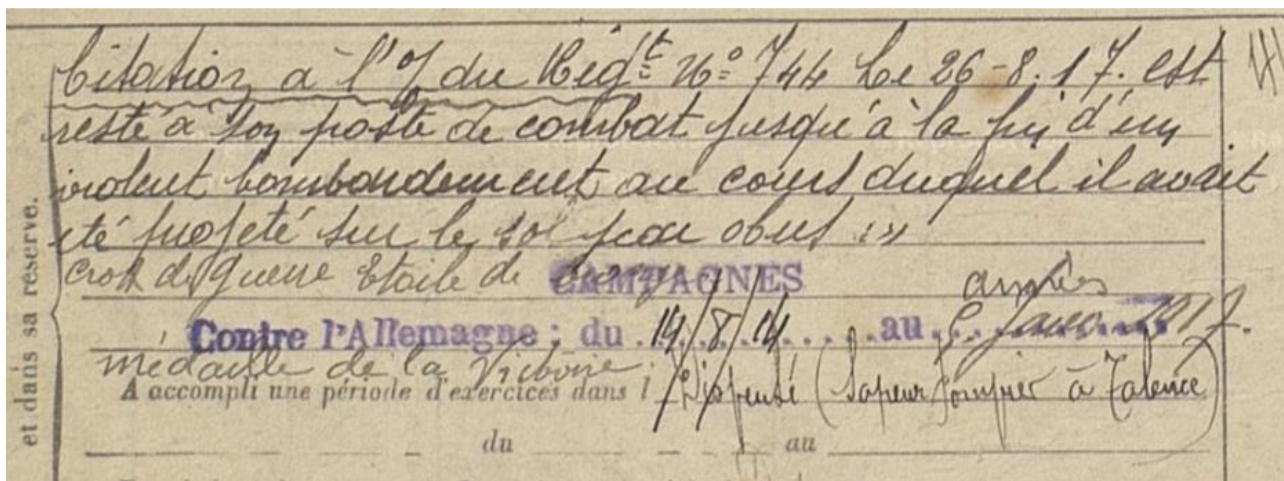 Citation à l'O/ du Régt No 744 Le 26-8.17. est
resté à son poste de combat jusqu'à la fin d'un
violent bombardement au cours duquel il avait
été projeté sur le sol par obus
Croix de guerre Etoile de
CAMPAGNES
Contre l'Allemagne : du 14/8/14 au 1917.
médaille de la Victoire
A accompli une période d'exercices dans l Dispensé (Sapeur Pompier à Talence)
du au
et dans sa réserve.